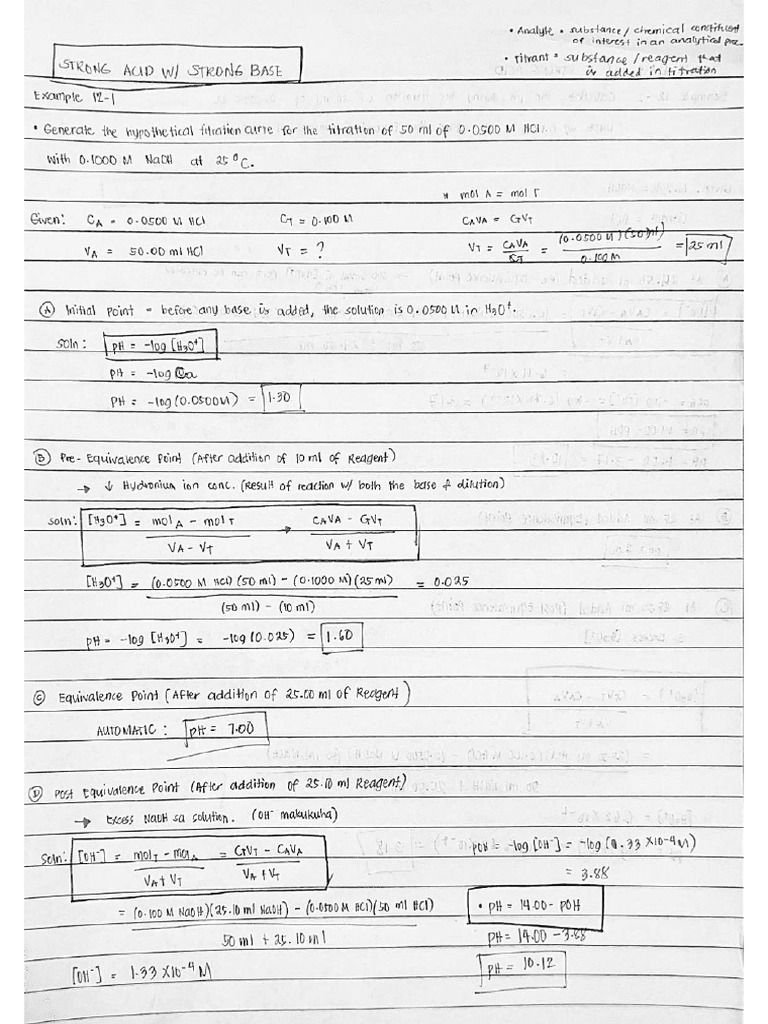 • Analyte = substance / chemical constituent
of interest in an analytical proc.
• Titrant = substance / reagent that
is added in titration
STRONG ACID W/ STRONG BASE
Example 12-1
• Generate the hypothetical titration curve for the titration of 50 ml of 0.0500 M HCl
with 0.1000 M NaOH at 25 °C.
* mol A = mol T
Given: CA = 0.0500 M HCl CT = 0.100 M CAVA = CTVT
VA = 50.00 ml HCl VT = ? VT = CAVA / CT = (0.0500 M)(50 ml) / 0.100M = 25 ml
Ⓐ Initial Point = before any base is added, the solution is 0.0500 M in H3O+.
soln: pH = -log [H3O+]
pH = -log Ca
pH = -log (0.0500M) = 1.30
Ⓑ Pre-Equivalence Point (After addition of 10 ml of Reagent)
→ ↓ Hydronium ion conc. (Result of reaction w/ both the base & dilution)
soln: [H3O+] = mol A - mol T / VA - VT → CAVA - CTVT / VA + VT
[H3O+] = (0.0500 M HCl)(50 ml) - (0.1000 M)(25 ml) / (50 ml) - (10 ml) = 0.025
pH = -log [H3O+] = -log (0.025) = 1.60
Ⓒ Equivalence Point (After addition of 25.00 ml of Reagent)
AUTOMATIC: pH = 7.00
Ⓓ Post Equivalence Point (After addition of 25.10 ml Reagent)
→ Excess NaOH sa solution. (OH- makukuha)
soln: [OH-] = mol T - mol A / VA + VT = CTVT - CAVA / VA + VT
= (0.100 M NaOH)(25.10 ml NaOH) - (0.0500 M HCl)(50 ml HCl) / 50 ml + 25.10 ml
[OH-] = 1.33 x10-4 M
pOH = -log [OH-] = -log (1.33 x10-4 M)
= 3.88
• pH = 14.00 - pOH
pH = 14.00 - 3.88
pH = 10.12